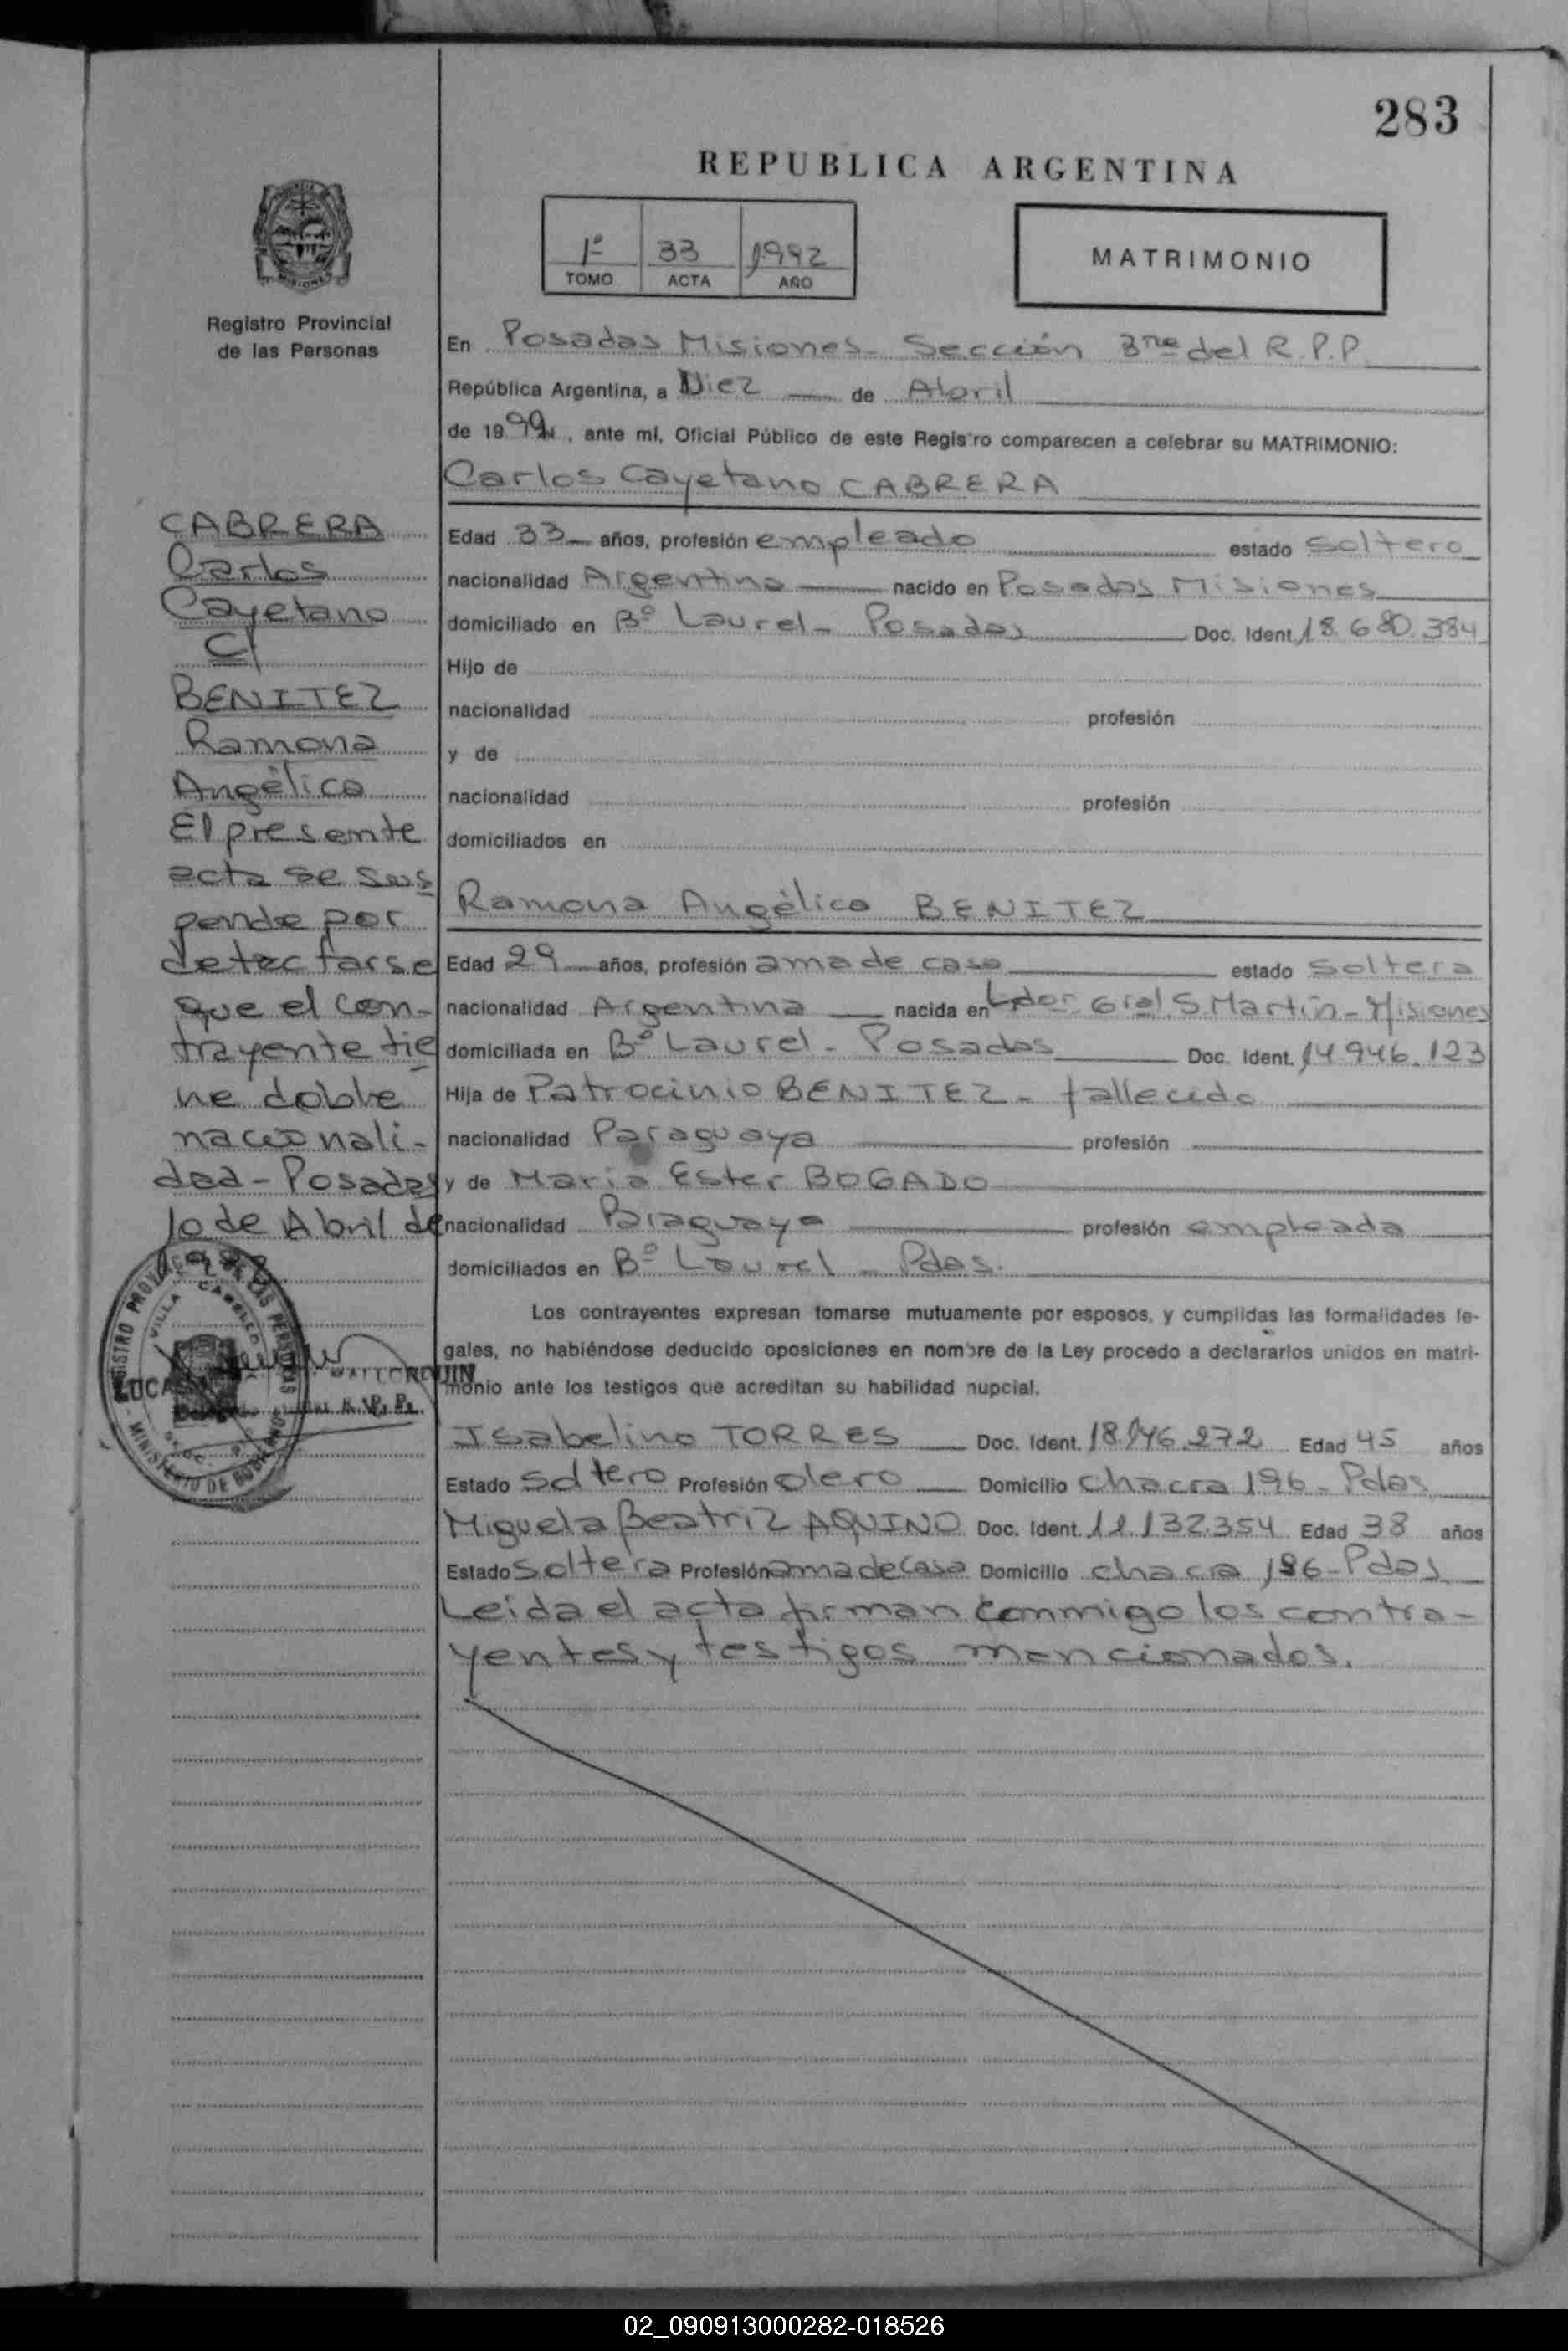 283
REPUBLICA ARGENTINA
1º 33 1992
TOMO ACTA AÑO
MATRIMONIO
Registro Provincial
de las Personas
En Posadas Misiones - Sección 3ra del R.P.P.
República Argentina, a Diez de Abril
de 1992, ante mí, Oficial Público de este Registro comparecen a celebrar su MATRIMONIO:
Carlos Cayetano CABRERA
Edad 33 años, profesión empleado estado soltero
nacionalidad Argentina nacido en Posadas Misiones
domiciliado en Bº Laurel - Posadas Doc. Ident. 18.680.384
Hijo de
nacionalidad profesión
y de
nacionalidad profesión
domiciliados en
Ramona Angélica BENITEZ
Edad 29 años, profesión ama de casa estado soltera
nacionalidad Argentina nacida en Ldor. Gral. S. Martín - Misiones
domiciliada en Bº Laurel - Posadas Doc. Ident. 14.946.123
Hija de Patrocinio BENITEZ - fallecido
nacionalidad Paraguaya profesión
y de Maria Ester BOGADO
nacionalidad Paraguaya profesión empleada
domiciliados en Bº Laurel - Pdas.
Los contrayentes expresan tomarse mutuamente por esposos, y cumplidas las formalidades le-
gales, no habiéndose deducido oposiciones en nombre de la Ley procedo a declararlos unidos en matri-
monio ante los testigos que acreditan su habilidad nupcial.
Isabelino TORRES Doc. Ident. 18.146.272 Edad 45 años
Estado Soltero Profesión olero Domicilio chacra 196 - Pdas
Miguela Beatriz AQUINO Doc. Ident. 11.132.354 Edad 38 años
Estado Soltera Profesión ama de casa Domicilio chacra 196 - Pdas
Leida el acta firman conmigo los contra-
yentes y testigos mencionados.
CABRERA
Carlos
Cayetano
C/
BENITEZ
Ramona
Angélica
El presente
acta se sus
pende por
detectarse
que el con-
trayente tie
ne doble
nacionali-
dad - Posadas
10 de Abril de
1992
REGISTRO PROVINCIAL DE LAS PERSONAS
VILLA CABELLO
MINISTERIO DE GOBIERNO
LUCAS
R.P.P.
02_090913000282-018526